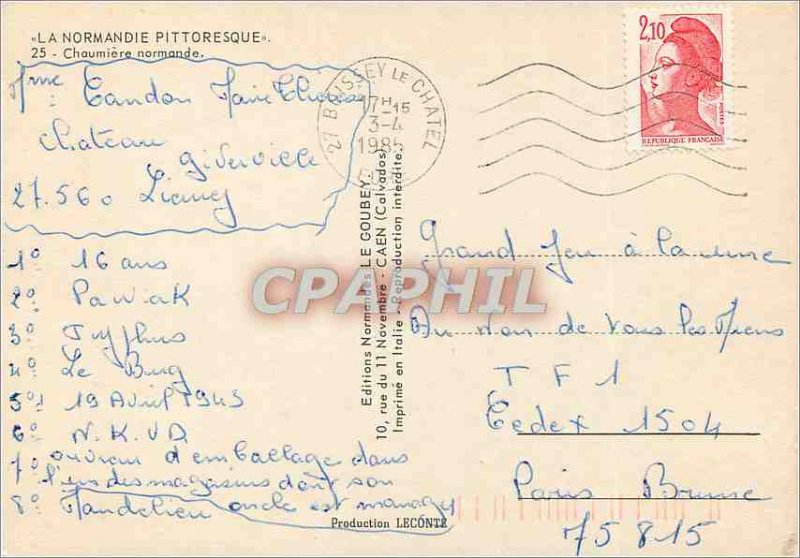 «LA NORMANDIE PITTORESQUE».
25 - Chaumière normande.
Mme Tandon
Chateau
Giverville
27.560 Lieurey
1° 16 ans
2° Pawiak
3° Typhus
4° Le Bug
5° 19 Avril 1943
6° N.K.V.D.
7° ouvreur d'emballage dans
l'un des magasins dont son
oncle est manager
8° Mandelieu
Production LECONTE
27 BOISSEY LE CHATEL
17H15
3-4
1985
Editions Normandes LE GOUBEY
10, rue du 11 Novembre - CAEN (Calvados)
Imprimé en Italie - Reproduction interdite.
CPAPHIL
2,10
POSTES
REPUBLIQUE FRANÇAISE
Grand Jeu à la une
Au Nom de tous les Miens
TF1
Cedex 1504
Paris Brune
75815